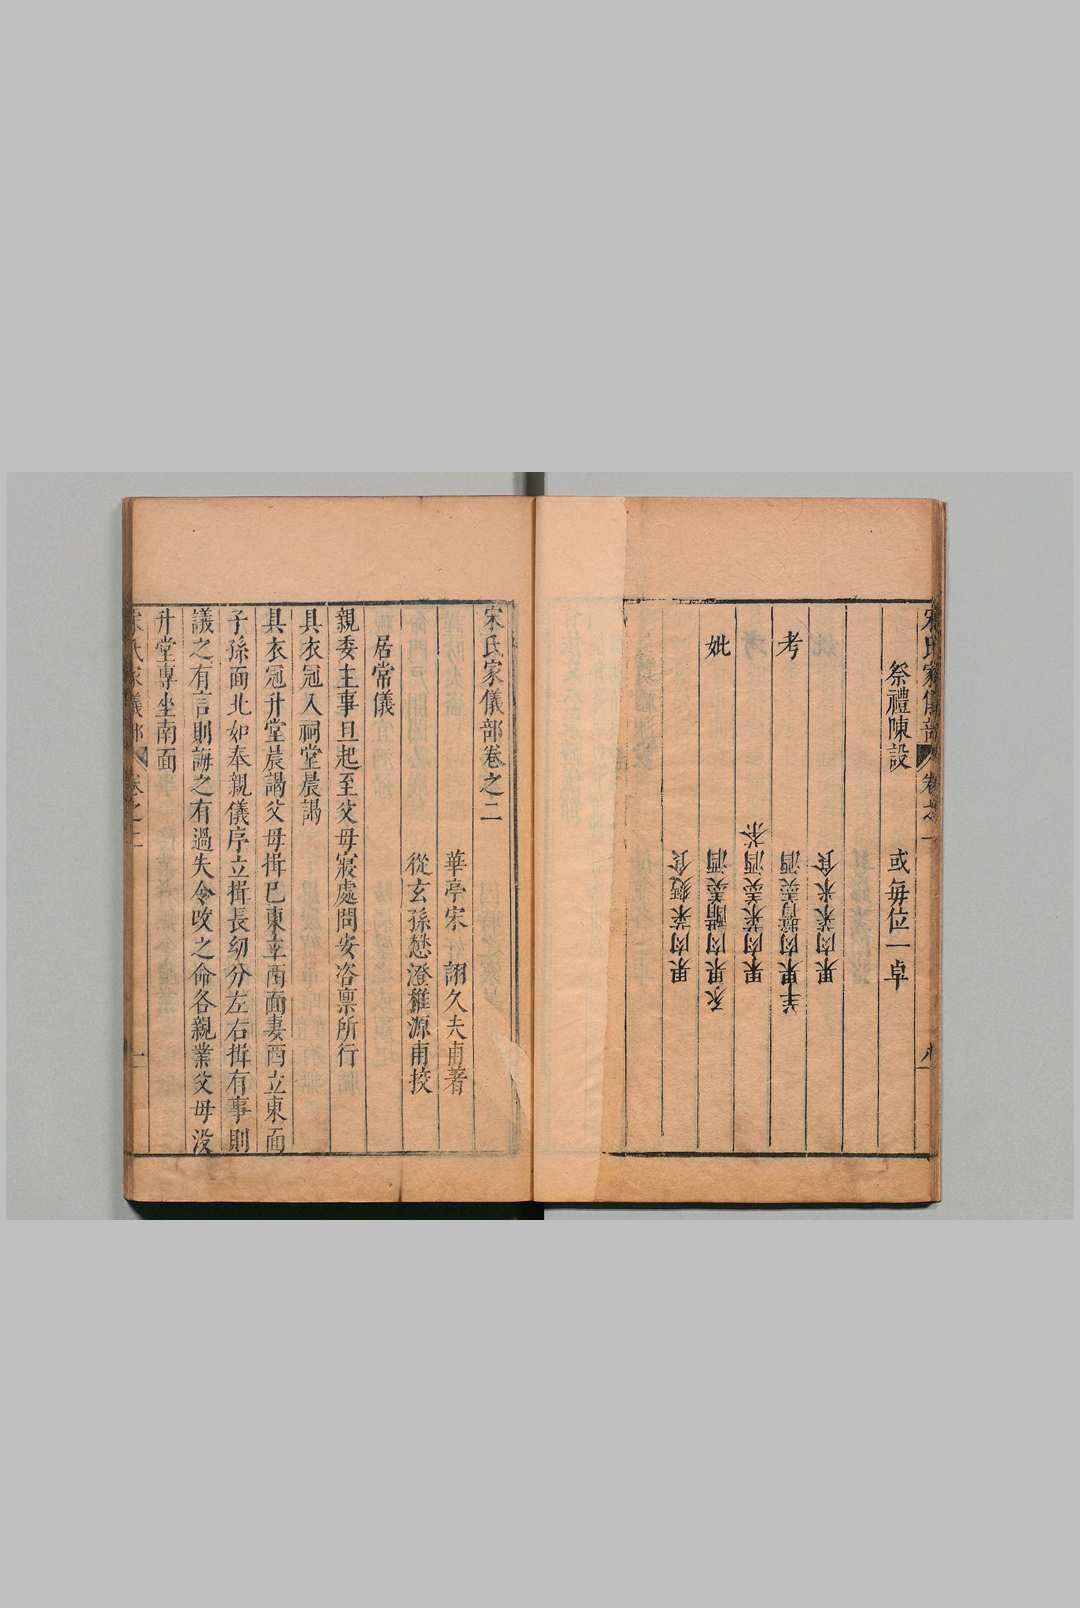 宋氏家儀部 卷之一 八
祭禮陳設 或每位一卓
果肉菜米食
考 羊果肉羹酒
果肉菜羹酒茶
妣 豕果肉醋羹酒
果肉菜麪食
宋氏家儀部卷之二
華亭宋 詡久夫甫著
從玄孫懋澄穉源甫挍
居常儀
親委主事旦起至父母寢處問安咨禀所行
具衣冠入祠堂晨謁
具衣冠升堂晨謁父母揖已東立西面妻西立東面
子孫面北如奉親儀序立揖長幼分左右揖有事則
議之有言則誨之有過失令改之命各親業父母沒
升堂專坐南面
宋氏家儀部 卷之二 一